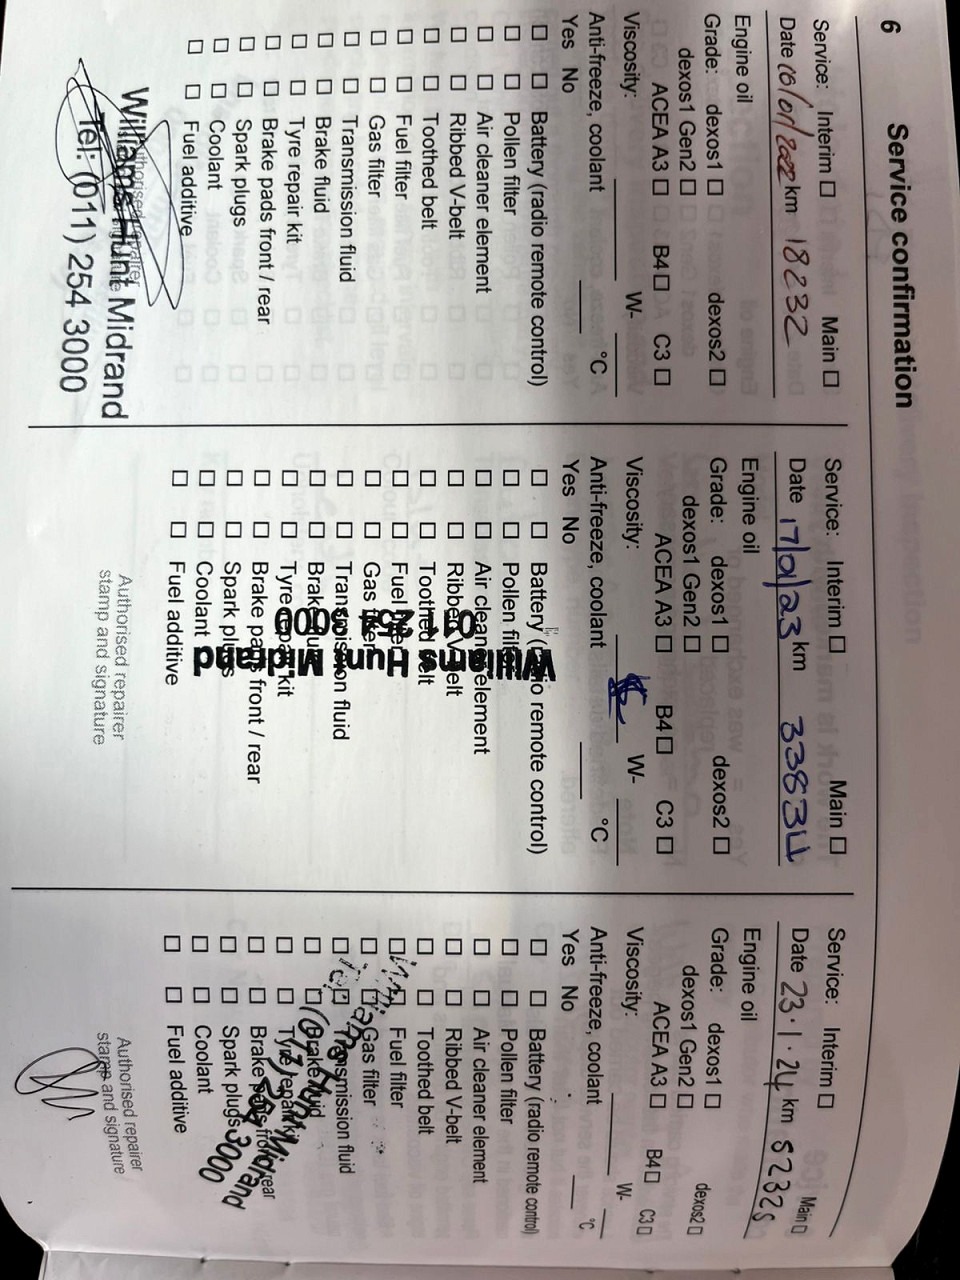 6 Service confirmation
Service: Interim □ Main □
Date 10/01/2022 km 18232
Engine oil
Grade: dexos1 □ dexos2 □
dexos1 Gen2 □
ACEA A3 □ B4 □ C3 □
Viscosity: W-
Anti-freeze, coolant °C
Yes No
□ □ Battery (radio remote control)
□ □ Pollen filter
□ □ Air cleaner element
□ □ Ribbed V-belt
□ □ Toothed belt
□ □ Fuel filter
□ □ Gas filter
□ □ Transmission fluid
□ □ Brake fluid
□ □ Tyre repair kit
□ □ Brake pads front / rear
□ □ Spark plugs
□ □ Coolant
□ □ Fuel additive
Authorised repairer
Williams Hunt Midrand
Tel: (011) 254 3000
Service: Interim □ Main □
Date 17/01/23 km 33834
Engine oil
Grade: dexos1 □ dexos2 □
dexos1 Gen2 □
ACEA A3 □ B4 □ C3 □
Viscosity: W-
Anti-freeze, coolant °C
Yes No
□ □ Battery (radio remote control)
□ □ Pollen filter
□ □ Air cleaner element
□ □ Ribbed V-belt
□ □ Toothed belt
□ □ Fuel filter
□ □ Gas filter
□ □ Transmission fluid
□ □ Brake fluid
□ □ Tyre repair kit
□ □ Brake pads front / rear
□ □ Spark plugs
□ □ Coolant
□ □ Fuel additive
Williams Hunt Midrand
Authorised repairer
stamp and signature
Service: Interim □ Main □
Date 23.1.24 km 52325
Engine oil
Grade: dexos1 □ dexos2 □
dexos1 Gen2 □
ACEA A3 □ B4 □ C3 □
Viscosity: W-
Anti-freeze, coolant °C
Yes No
□ □ Battery (radio remote control)
□ □ Pollen filter
□ □ Air cleaner element
□ □ Ribbed V-belt
□ □ Toothed belt
□ □ Fuel filter
□ □ Gas filter
□ □ Transmission fluid
□ □ Brake fluid
□ □ Tyre repair kit
□ □ Brake pads front / rear
□ □ Spark plugs
□ □ Coolant
□ □ Fuel additive
Williams Hunt Midrand
Tel: (011) 254 3000
Authorised repairer
stamp and signature